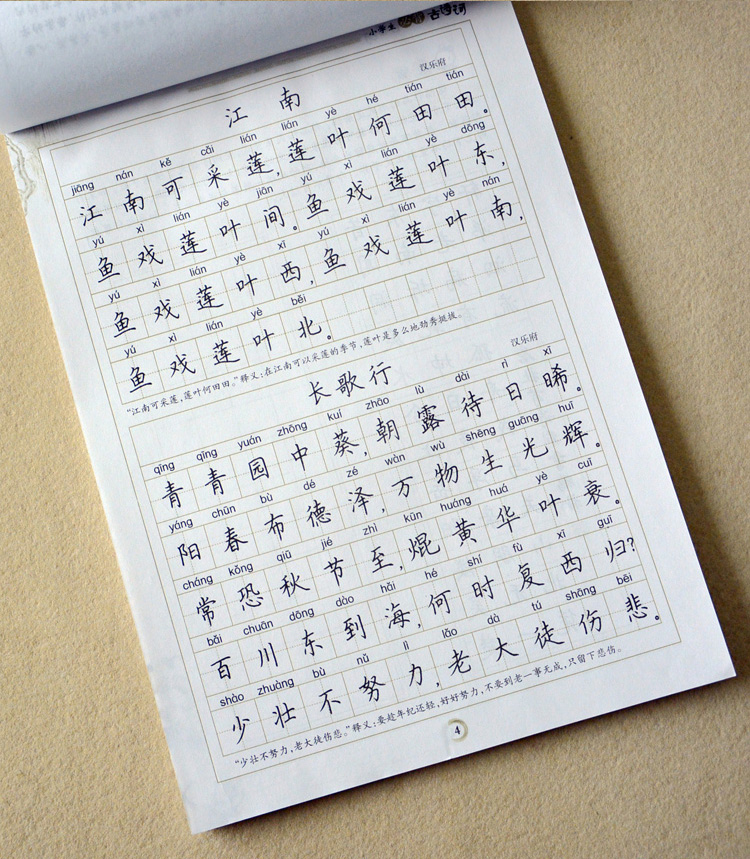 小学生 古诗词
江南
汉乐府
jiāng nán kě cǎi lián lián yè hé tián tián
江南可采莲,莲叶何田田。
yú xì lián yè jiān yú xì lián yè dōng
鱼戏莲叶间。鱼戏莲叶东,
yú xì lián yè xī yú xì lián yè nán
鱼戏莲叶西,鱼戏莲叶南,
yú xì lián yè běi
鱼戏莲叶北。
“江南可采莲,莲叶何田田。”释义:在江南可以采莲的季节,莲叶是多么地劲秀挺拔。
长歌行
汉乐府
qīng qīng yuán zhōng kuí zhāo lù dài rì xī
青青园中葵,朝露待日晞。
yáng chūn bù dé zé wàn wù shēng guāng huī
阳春布德泽,万物生光辉。
cháng kǒng qiū jié zhì kūn huáng huá yè cuī
常恐秋节至,焜黄华叶衰。
bǎi chuān dōng dào hǎi hé shí fù xī guī
百川东到海,何时复西归?
shào zhuàng bù nǔ lì lǎo dà tú shāng bēi
少壮不努力,老大徒伤悲。
“少壮不努力,老大徒伤悲。”释义:要趁年纪还轻,好好努力,不要到老一事无成,只留下悲伤。
4